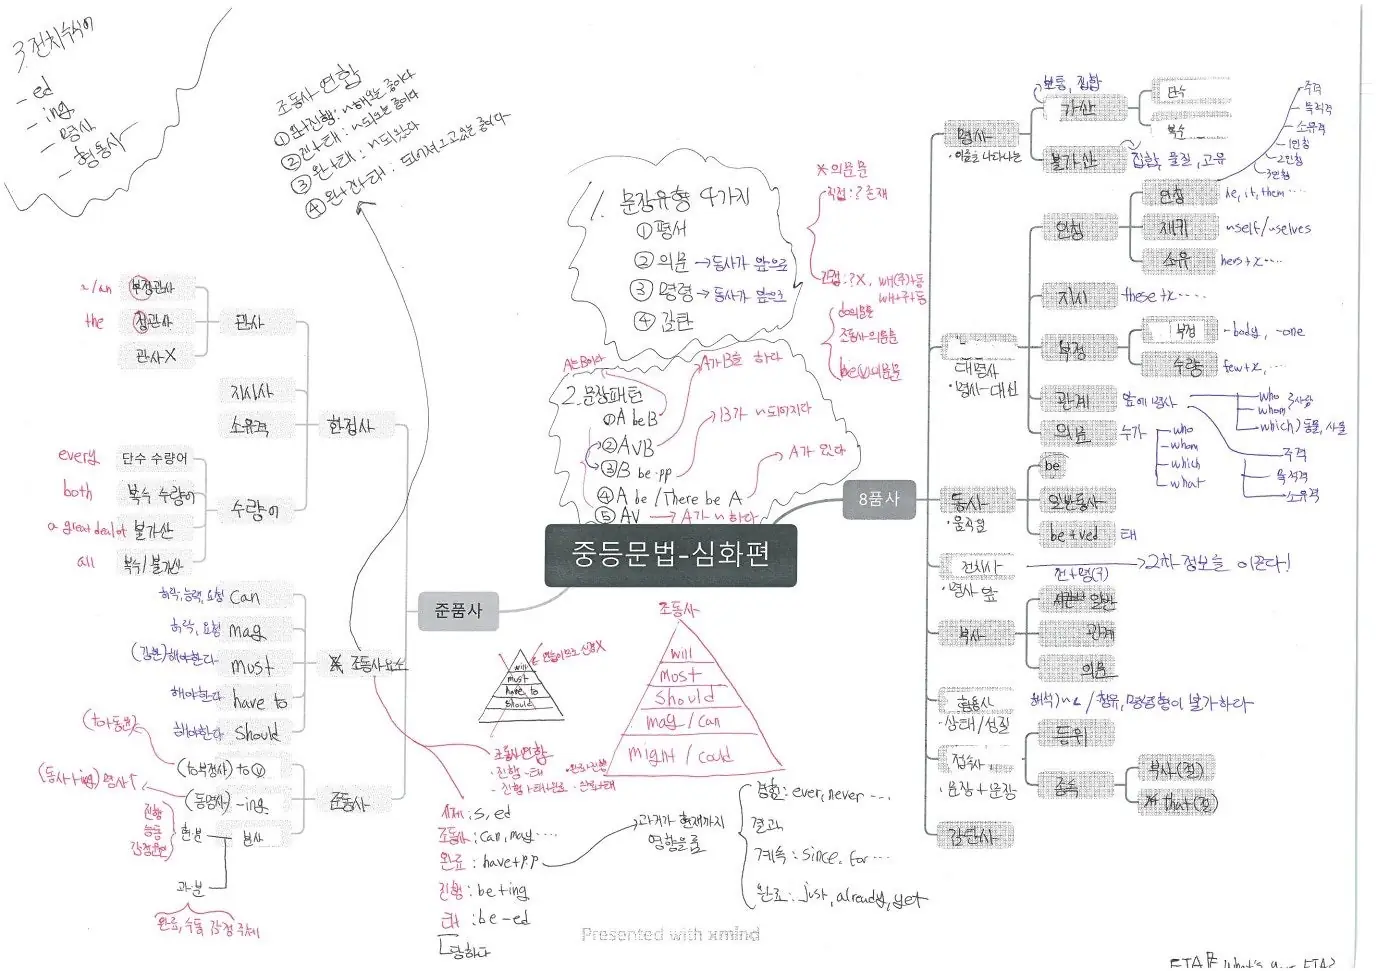 3. 전치수식어
- ed
- ing
- 명사
- 형용사
조동사 연합
① 완+진행 : ~해오는 중이다
② 진+태 : ~되는 중이다
③ 완+태 : ~되왔다
④ 완+진+태 :
1. 문장유형 4가지
① 평서
② 의문 → 동사가 앞으로
③ 명령 → 동사가 앞으로
④ 감탄
※ 의문문
직접 : ? 존재
간접 : ? X, wh(주)+동
wh+주+동
do의문문
조동사 의문문
be(v)의문문
2. 문장패턴
A는 B이다
① A be B
A가 B를 하다
② A V B
B가 ~되어지다
③ B be pp
A가 있다
④ A be / There be A
⑤ AV → A가 ~하다
중등문법-심화편
8품사
명사
· 이름을 나타내는
보통, 집합
가산
단수
복수
불가산
집합, 물질, 고유
대명사
· 명사-대신
인칭
인칭
he, it, them ····
주격
목적격
소유격
1인칭
2인칭
3인칭
재귀
~self/~selves
소유
hers+x····
지시
these+x····
부정
부정
-body, -one
수량
few+x, ...
관계
앞에 명사
who
whom
which ) 동물, 사물
주격
목적격
소유격
의문
누가
who
whom
which
what
동사
· 움직임
be
일반동사
be+ved
태
전치사
· 명사 앞
전+명(구)
2차 정보를 이끈다!
부사
일반
관계
의문
형용사
· 상태/성질
접속사
· 문장+문장
등위
종속
부사(절)
that(절)
감탄사
준품사
한정사
관사
a/an
부정관사
the
정관사
관사X
지시사
소유격
수량어
every
단수 수량어
both
복수 수량어
a great deal of
불가산
all
복수/불가산
※ 조동사요소
허락, 능력, 요청
can
허락, 요청
may
(강한)해야한다
must
해야한다
have to
해야한다
should
준동사
(to부정사) to ⓥ
(동사+ing) 명사↑
(동명사) -ing
분사
현분
진행
능동
과분
완료, 수동, 감정 주체
will
must
have to
should
조동사연합
· 진행-태
· 완료진행
· 진행+태+완료
· 완료+태
조동사
will
Must
Should
may / can
might / could
시제 : s, ed
조동사 : can, may ····
완료 : have+pp
진행 : be+ing
태 : be-ed
당하다
과거가 현재까지
영향을 줌
경험 : ever, never ···
결과
계속 : since, for ···
완료 : just, already, yet
Presented with xmind